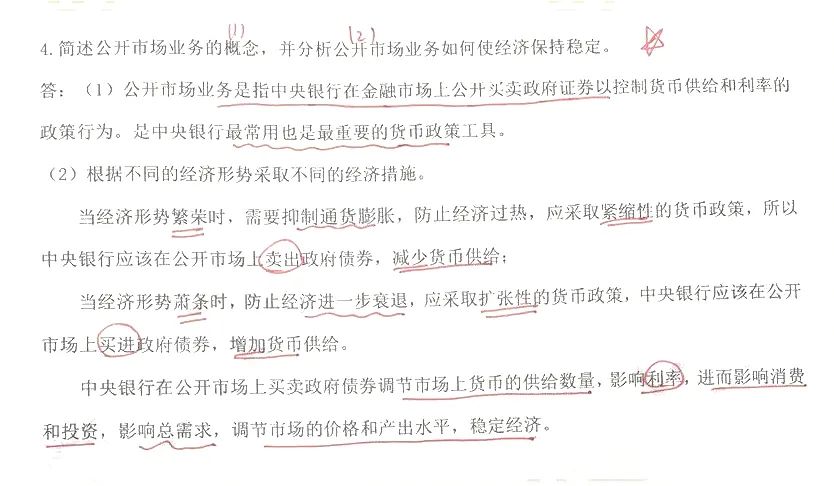 (1) (2)
4.简述公开市场业务的概念，并分析公开市场业务如何使经济保持稳定。
答：（1）公开市场业务是指中央银行在金融市场上公开买卖政府证券以控制货币供给和利率的
政策行为。是中央银行最常用也是最重要的货币政策工具。
（2）根据不同的经济形势采取不同的经济措施。
当经济形势繁荣时，需要抑制通货膨胀，防止经济过热，应采取紧缩性的货币政策，所以
中央银行应该在公开市场上卖出政府债券，减少货币供给；
当经济形势萧条时，防止经济进一步衰退，应采取扩张性的货币政策，中央银行应该在公开
市场上买进政府债券，增加货币供给。
中央银行在公开市场上买卖政府债券调节市场上货币的供给数量，影响利率，进而影响消费
和投资，影响总需求，调节市场的价格和产出水平，稳定经济。